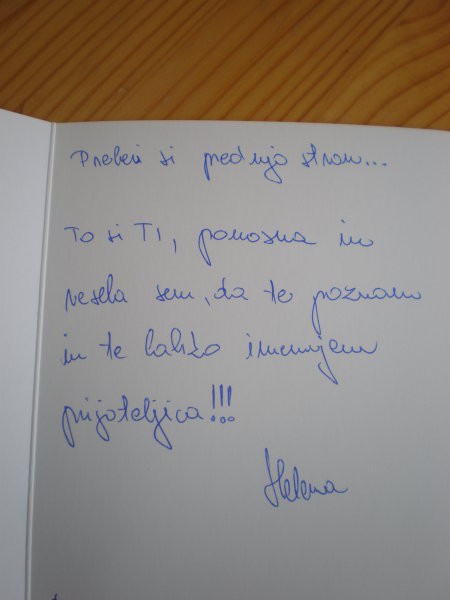 Preberi si prednjo stran...
To si TI, ponosna in
vesela sem, da te poznam
in te lahko imenujem
prijateljica!!!
Helena